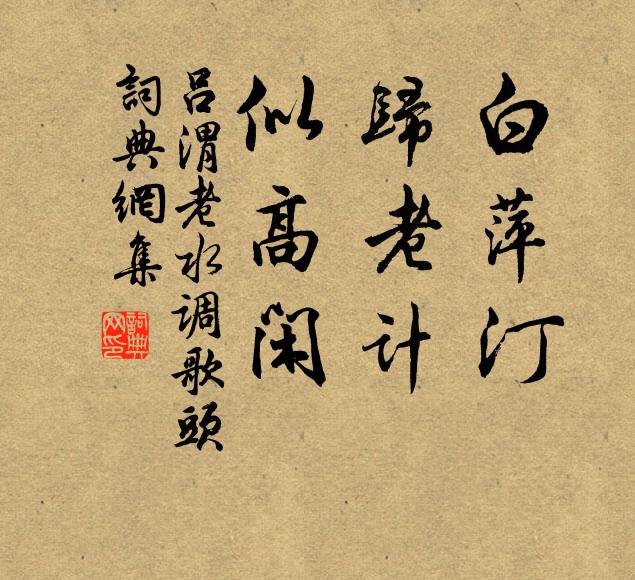 白萍汀
歸老計
似高閑
吕渭老水调歌頭
詞典網集
詞典网印